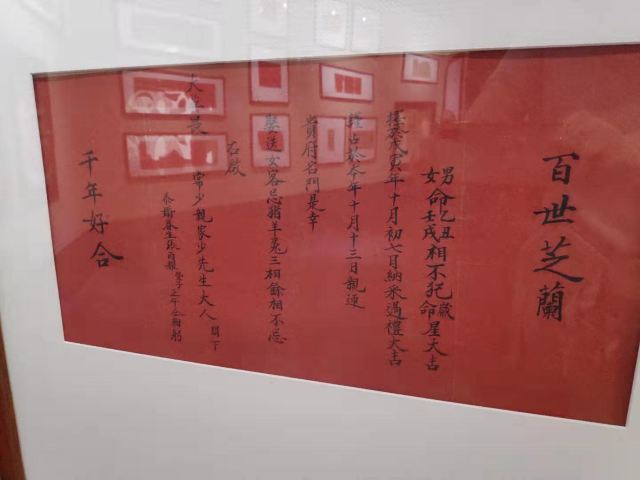 百世芝蘭
男命乙丑
女命壬戌相不犯歲命星大吉
擇於戊寅年十月初七月納采過禮大吉
謹占於今年十月十三日親迎
貴府名門是幸
娶送女客忌豬羊兔三相餘相不忌
右啟
大
常少親家少先生大人 閣下
忝 眷生張 鞠躬
千年好合